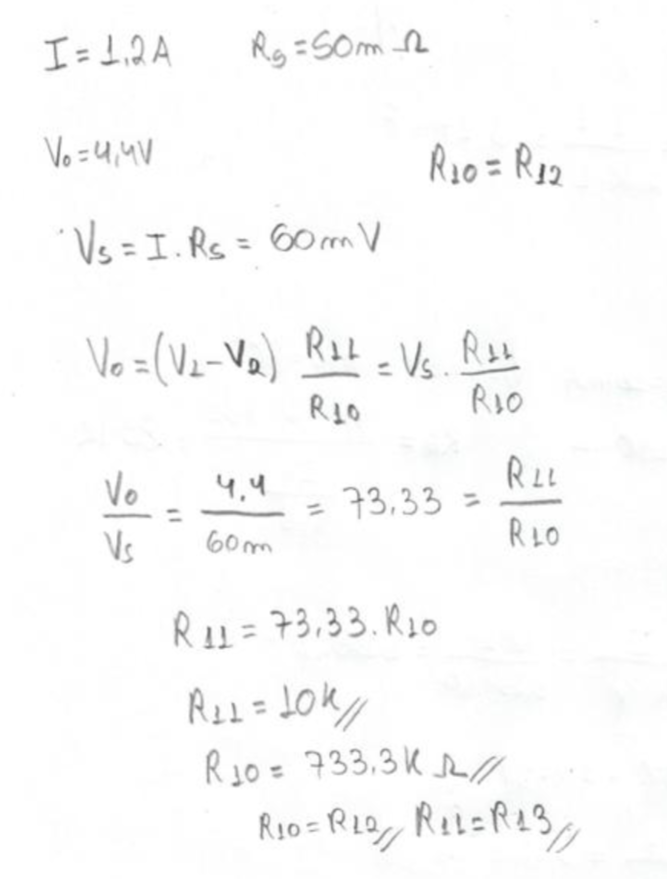 I = 1,2A Rs = 50m Ω
Vo = 4,4V
R10 = R12
Vs = I . Rs = 60mV
Vo = (V1 - V2) R11/R10 = Vs . R11/R10
Vo/Vs = 4,4/60m = 73,33 = R11/R10
R11 = 73,33 . R10
R11 = 10K//
R10 = 733,3K Ω//
R10 = R12// R11 = R13//